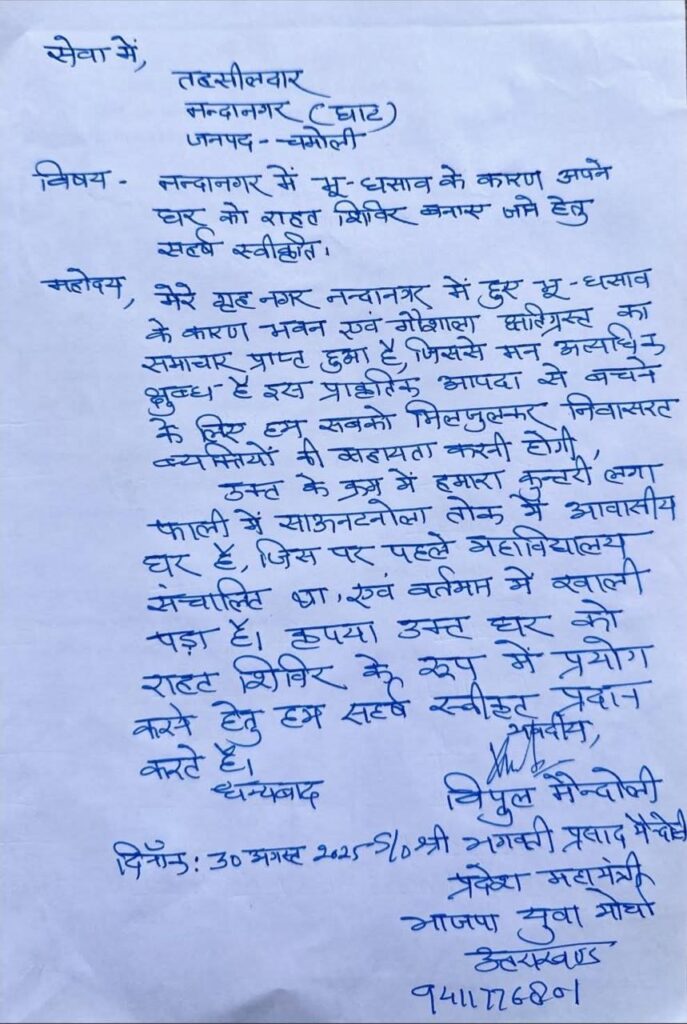 सेवा में,
तहसीलदार
नन्दानगर (घाट)
जनपद - चमोली
विषय - नन्दानगर में भू-धसाव के कारण अपने
घर को राहत शिविर बनाए जाने हेतु
सहर्ष स्वीकृति।
महोदय, मेरे गृह नगर नन्दानगर में हुए भू-धसाव
के कारण भवन एवं गौशाला क्षतिग्रस्त का
समाचार प्राप्त हुआ है, जिससे मन अत्यधिक
क्षुब्ध है इस प्राकृतिक आपदा से बचने
के लिए हम सबको मिलजुलकर निवासरत
व्यक्तियों की सहायता करनी होगी,
उक्त के क्रम में हमारा कुन्तरी लगा
फाली में तोक में आवासीय
घर है, जिस पर पहले महाविद्यालय
संचालित था, एवं वर्तमान में खाली
पड़ा है। कृपया उक्त घर को
राहत शिविर के रूप में प्रयोग
करने हेतु हम सहर्ष स्वीकृत प्रदान
करते है।
भवदीय,
धन्यबाद
विपुल मैन्दोली
दिनाँक: 30 अगस्त 2025 S/o श्री भगवती प्रसाद मैन्दोली
प्रदेश महामंत्री
भाजपा युवा मोर्चा
उत्तराखण्ड
9411776801